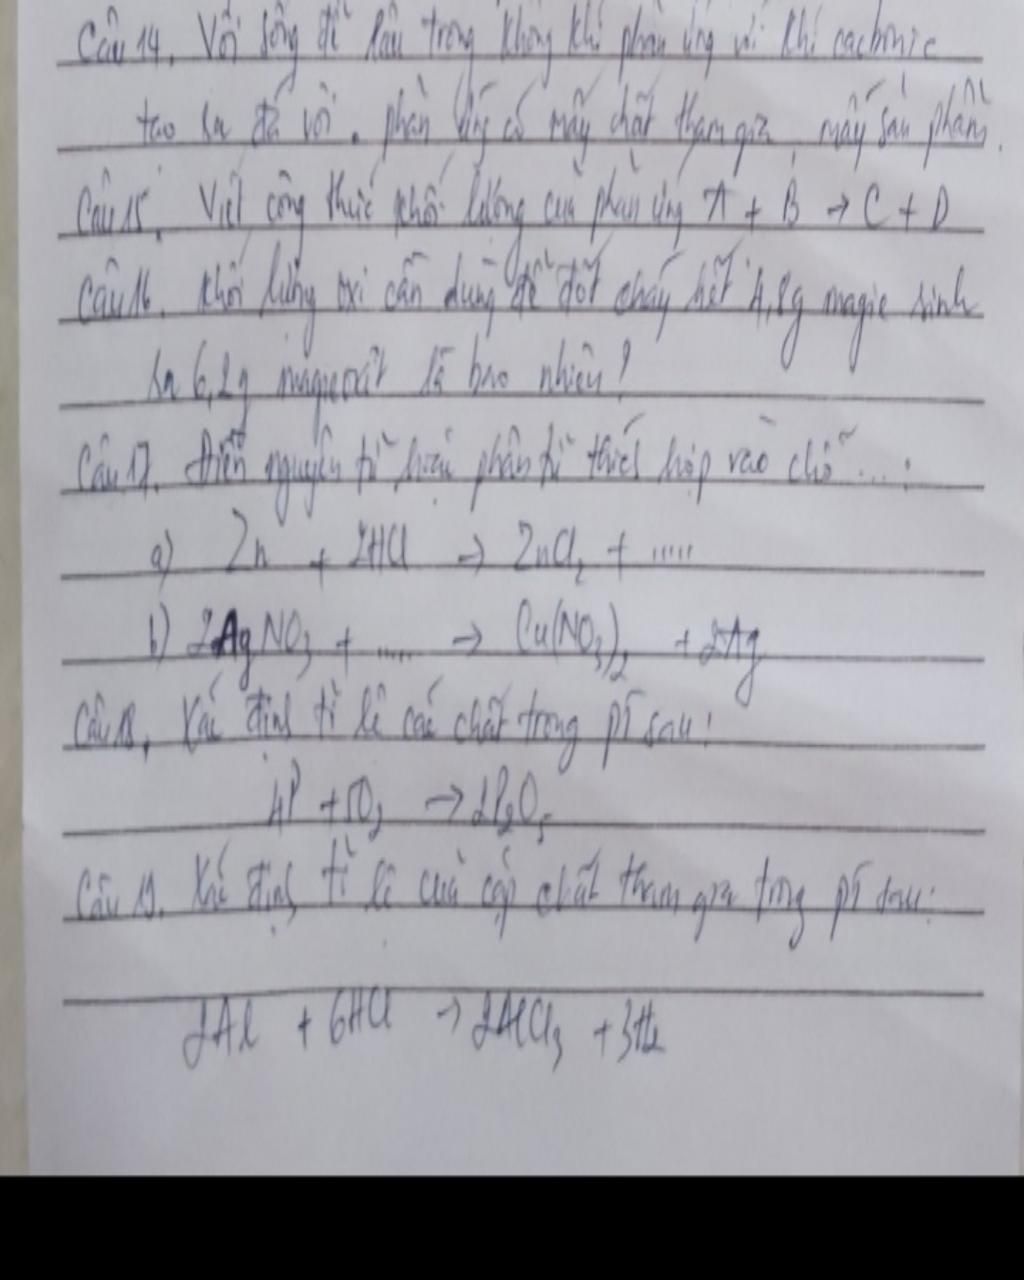 Câu 14. Vôi sống để lâu trong không khí phản ứng với khí cacbonic
tạo ra đá vôi. phản ứng có mấy chất tham gia, mấy sản phẩm.
Câu 15. Viết công thức khối lượng của phản ứng A + B → C + D
Câu 16. Khối lượng oxi cần dùng để đốt cháy hết 4,8g magie sinh
ra 6,2g magieoxit là bao nhiêu?
Câu 17. Điền nguyên tử hoặc phân tử thích hợp vào chỗ ....:
a) Zn + 2HCl → ZnCl₂ + .....
b) 2AgNO₃ + ..... → Cu(NO₃)₂ + 2Ag
Câu 18. Xác định tỉ lệ các chất trong pt sau:
4P + 5O₂ → 2P₂O₅
Câu 19. Xác định tỉ lệ của cặp chất tham gia trong pt sau:
2Al + 6HCl → 2AlCl₃ + 3H₂